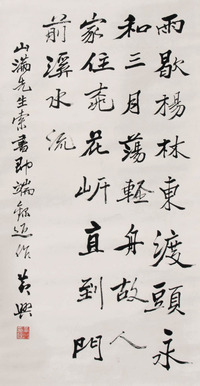 雨歇楊林東渡頭永
和三月蕩輕舟故人
家住桃花岸直到門
前溪水流
山滿先生索書即
黃興